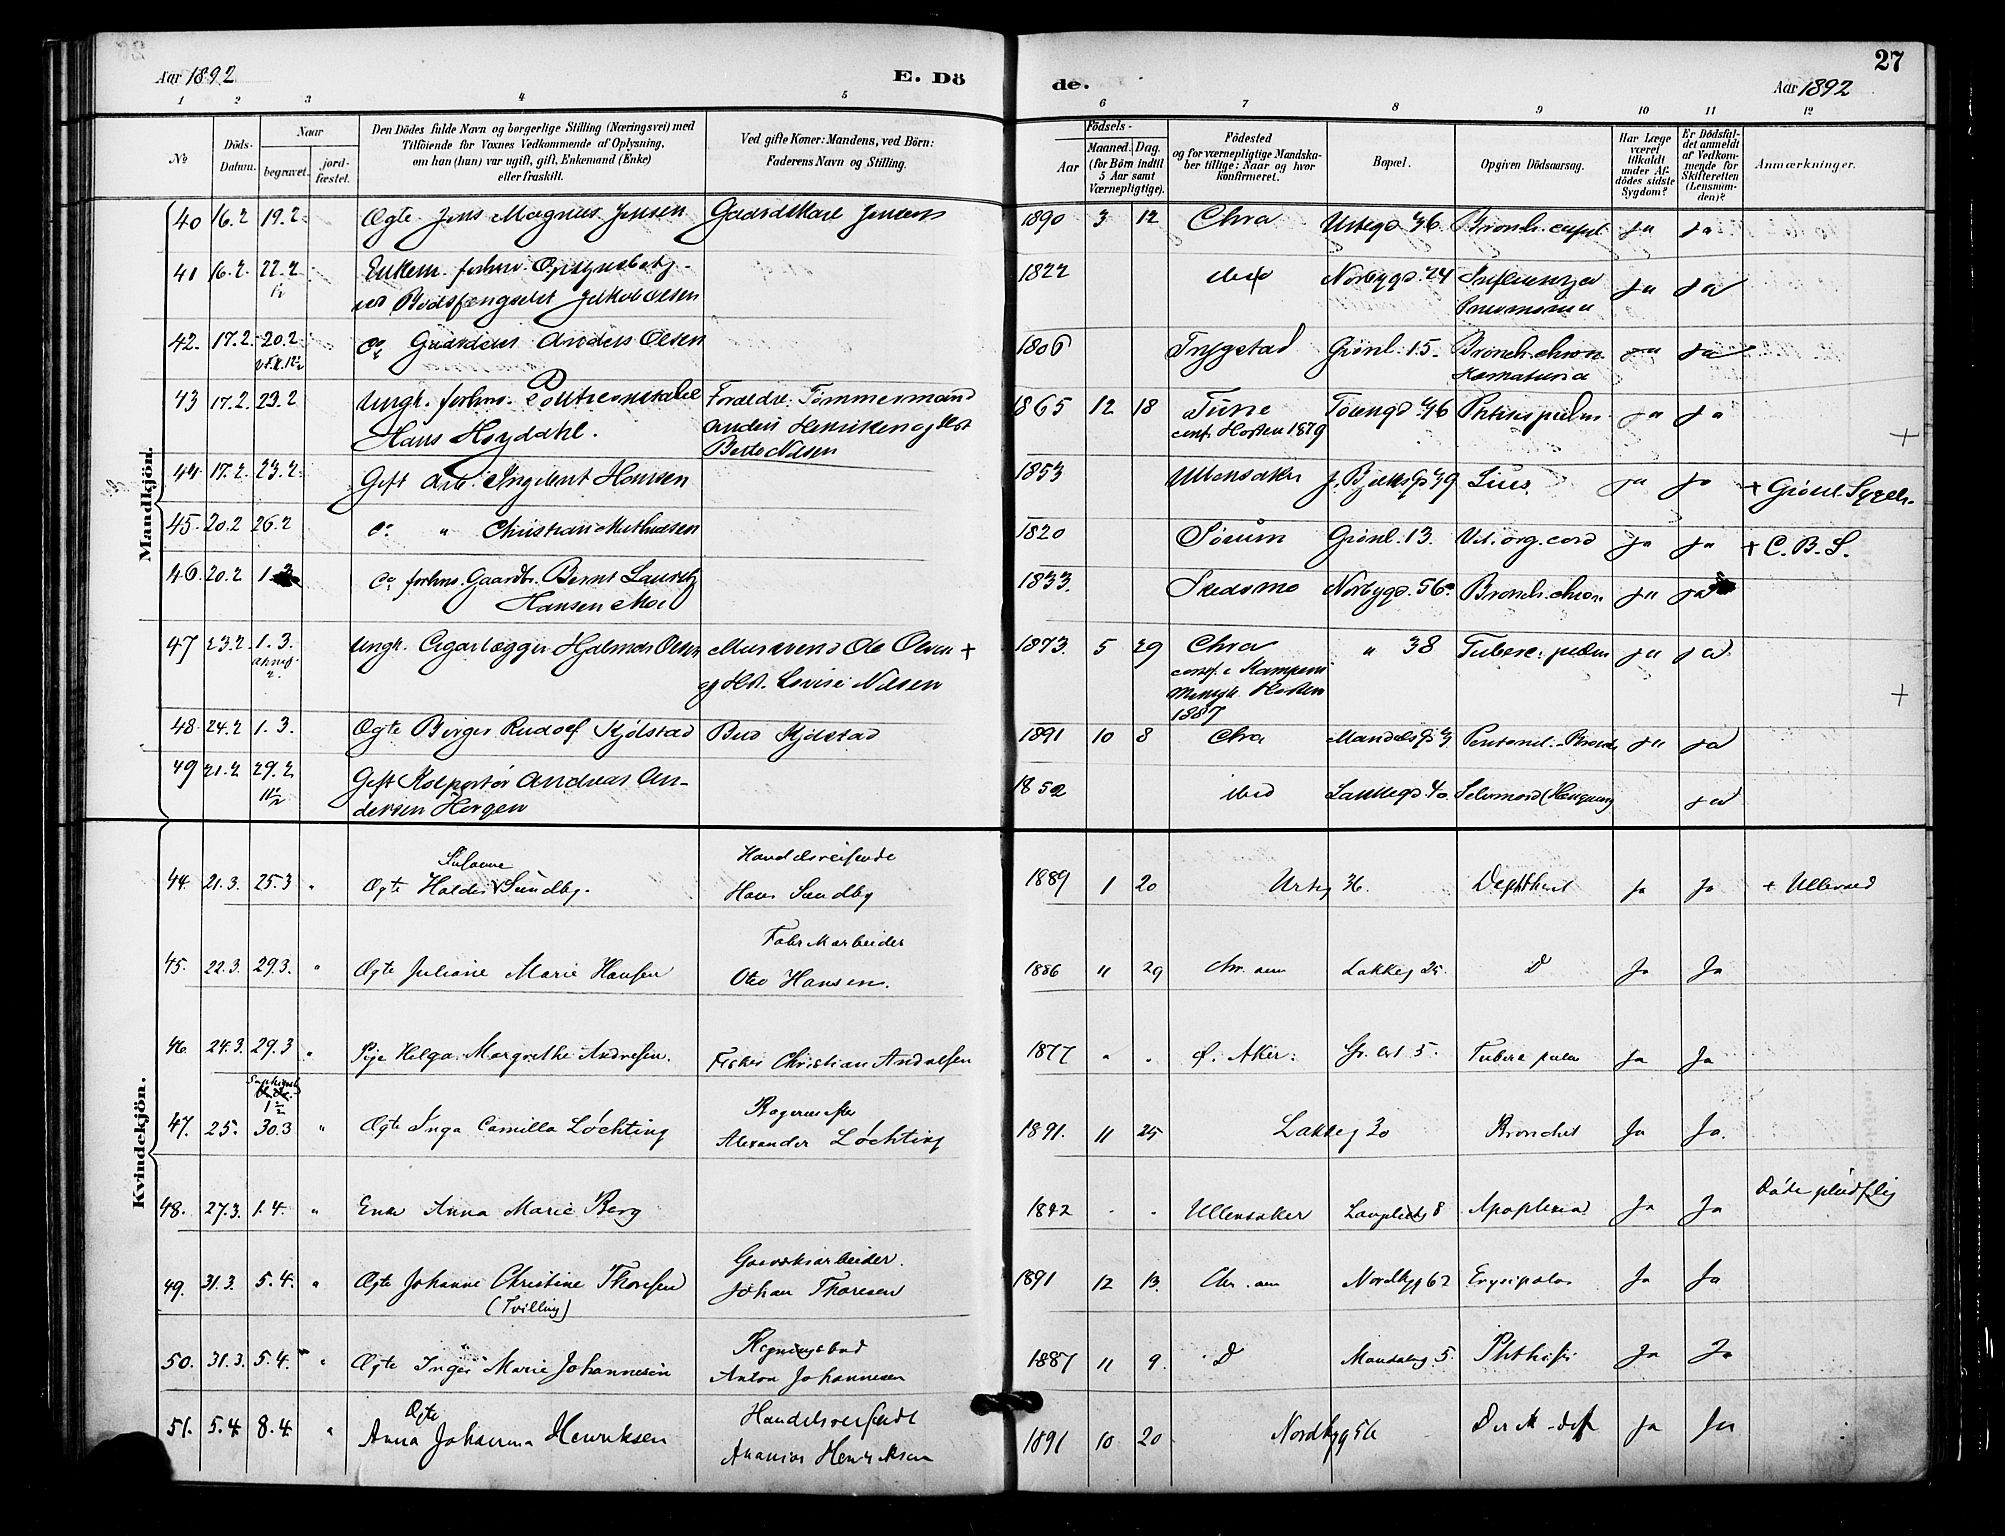 Aar 1892
E. Dö
de.
Aar 1892
27
1 2 3 4 5 6 7 8 9 10 11 12
No
Döds-Datum.
Naar
begravet.
jord-fæstet.
Den Dödes fulde Navn og borgerlige Stilling (Næringsvei) med
Tilföiende for Voxnes Vedkommende af Oplysning,
om han (hun) var ugift, gift, Enkemand (Enke)
eller fraskilt.
Ved gifte Koner: Mandens, ved Börn:
Faderens Navn og Stilling.
Födsels-
Aar
Maaned. Dag.
(for Börn indtil
5 Aar samt
Værnepligtige).
Födested
og for værnepligtige Mandska-
ber tillige: Naar og hvor
konfirmeret.
Bopæl.
Opgiven Dödsaarsag.
Har Læge
været
tilkaldt
under Af-
dödes sidste
Sygdom?
Er Dödsfal-
det anmeldt
af Vedkom-
mende for
Skifteretten
(Lensman-
den)?
Anmærkninger.
Mandkjön.
40 16.2 19.2 Ægte Jens Magnus Jensen 1890 3 12 Chra Urtegd 36 Bronch. ja ja
41 16.2 22.2 Enkem. forhv. Opsynsbetj.
ved Bodsfængselet Jakob Olsen 1822 ibid Norbygd. 24 Influenza
Pneumonia ja ja
42. 17.2 20.2 do Gaardeier Anders Olsen 1806 Trygstad Grønl. 15. Bronch. chron.
Hæmaturia ja ja
43 17.2. 23.2 Ungk. forhv. Politikonstabel
Hans Høydahl. Forældre: Tømmermand
Anders Henriksen og Hst
Berte Nilsen 1865 12 18 Tune
conf. Høsten 1879 Phthis. pulm. ja ja +
44 17.2. 23.2. Gift Arb. Ingebret Hansen 1853 Ullensaker Lues ja ja + Grønl. Sygeh.
45. 20.2 26.2 do " Christian Mathiasen 1820 Sørum Grønl. 13. Vit. org. cord ja ja + C. B. S.
46 20.2 1. 3 do forhv. Gaardbr. Bernt Lauritz
Hansen Moe 1833. Skedsmo Norbygd. 56 Bronch. chron ja ja
47 23.2 1. 3. Ungk. Cigarlægger Hjalmar Olsen Murersvend Ole Olsen +
og Hst. Lovise Nilsen 1873. 5 29 Chra
conf. i Kampens
Menigh. Høsten
1887 " 38 Tuberc. pulm ja ja +
48. 24.2 1. 3. Ægte Birger Rudolf Kjølstad Bud Kjølstad 1891 10 8 Chra ja ja
49 21.2 29.2 Gift Kolportør Andreas An-
dersen Horgen 1852 ibid Lakkegd 40. Selvmord (Hængning) ja
Kvindekjön.
44. 21.3. 25.3 " Ægte Sundby. Handelsreisende
Hans Sundby 1889 1 20 Urteg 36. Ja Ja + Ullevaal
45. 22.3. 29.3. " Ægte Juliane Marie Hansen Fabr Marbeider
Otto Hansen. 1886 11 29 Lakkeg 25. D Ja Ja
46. 24.3. 29.3 " Pige Helga Margrethe Andresen. Fisker Christian Andresen 1877 " " Ø. Aker. Tuberc pulm Ja Ja
47. 25. 30.3 " Ægte Inga Camilla Løchting Bagermester
Alexander Løchting 1891. 11 25 Lakkeg 30 Bronchit Ja Ja.
48. 27.3. 1.4. " Enke Anna Marie Berg 1842 " " Ullensaker 8 Apoplexia Ja Ja Døde pludselig
49. 31.3. 5.4. " Ægte Johanne Christine Thoresen
(Tvilling) Gasværksarbeider.
Johan Thoresen 1891 12 13. Nordbyg 62 Erysipelas Ja Ja
50. 31.3. 5.4. " Ægte Inga Marie Johannesen Regningsbud
Anton Johannesen 1887 11 9. D Mandalsg. 5. Phthisis Ja Ja
51. 5.4 8.4. " Ægte
Anna Johanna Henriksen Handelsreisende
Ananias Henriksen 1891 10 20 Nordbyg 56 Ja Ja